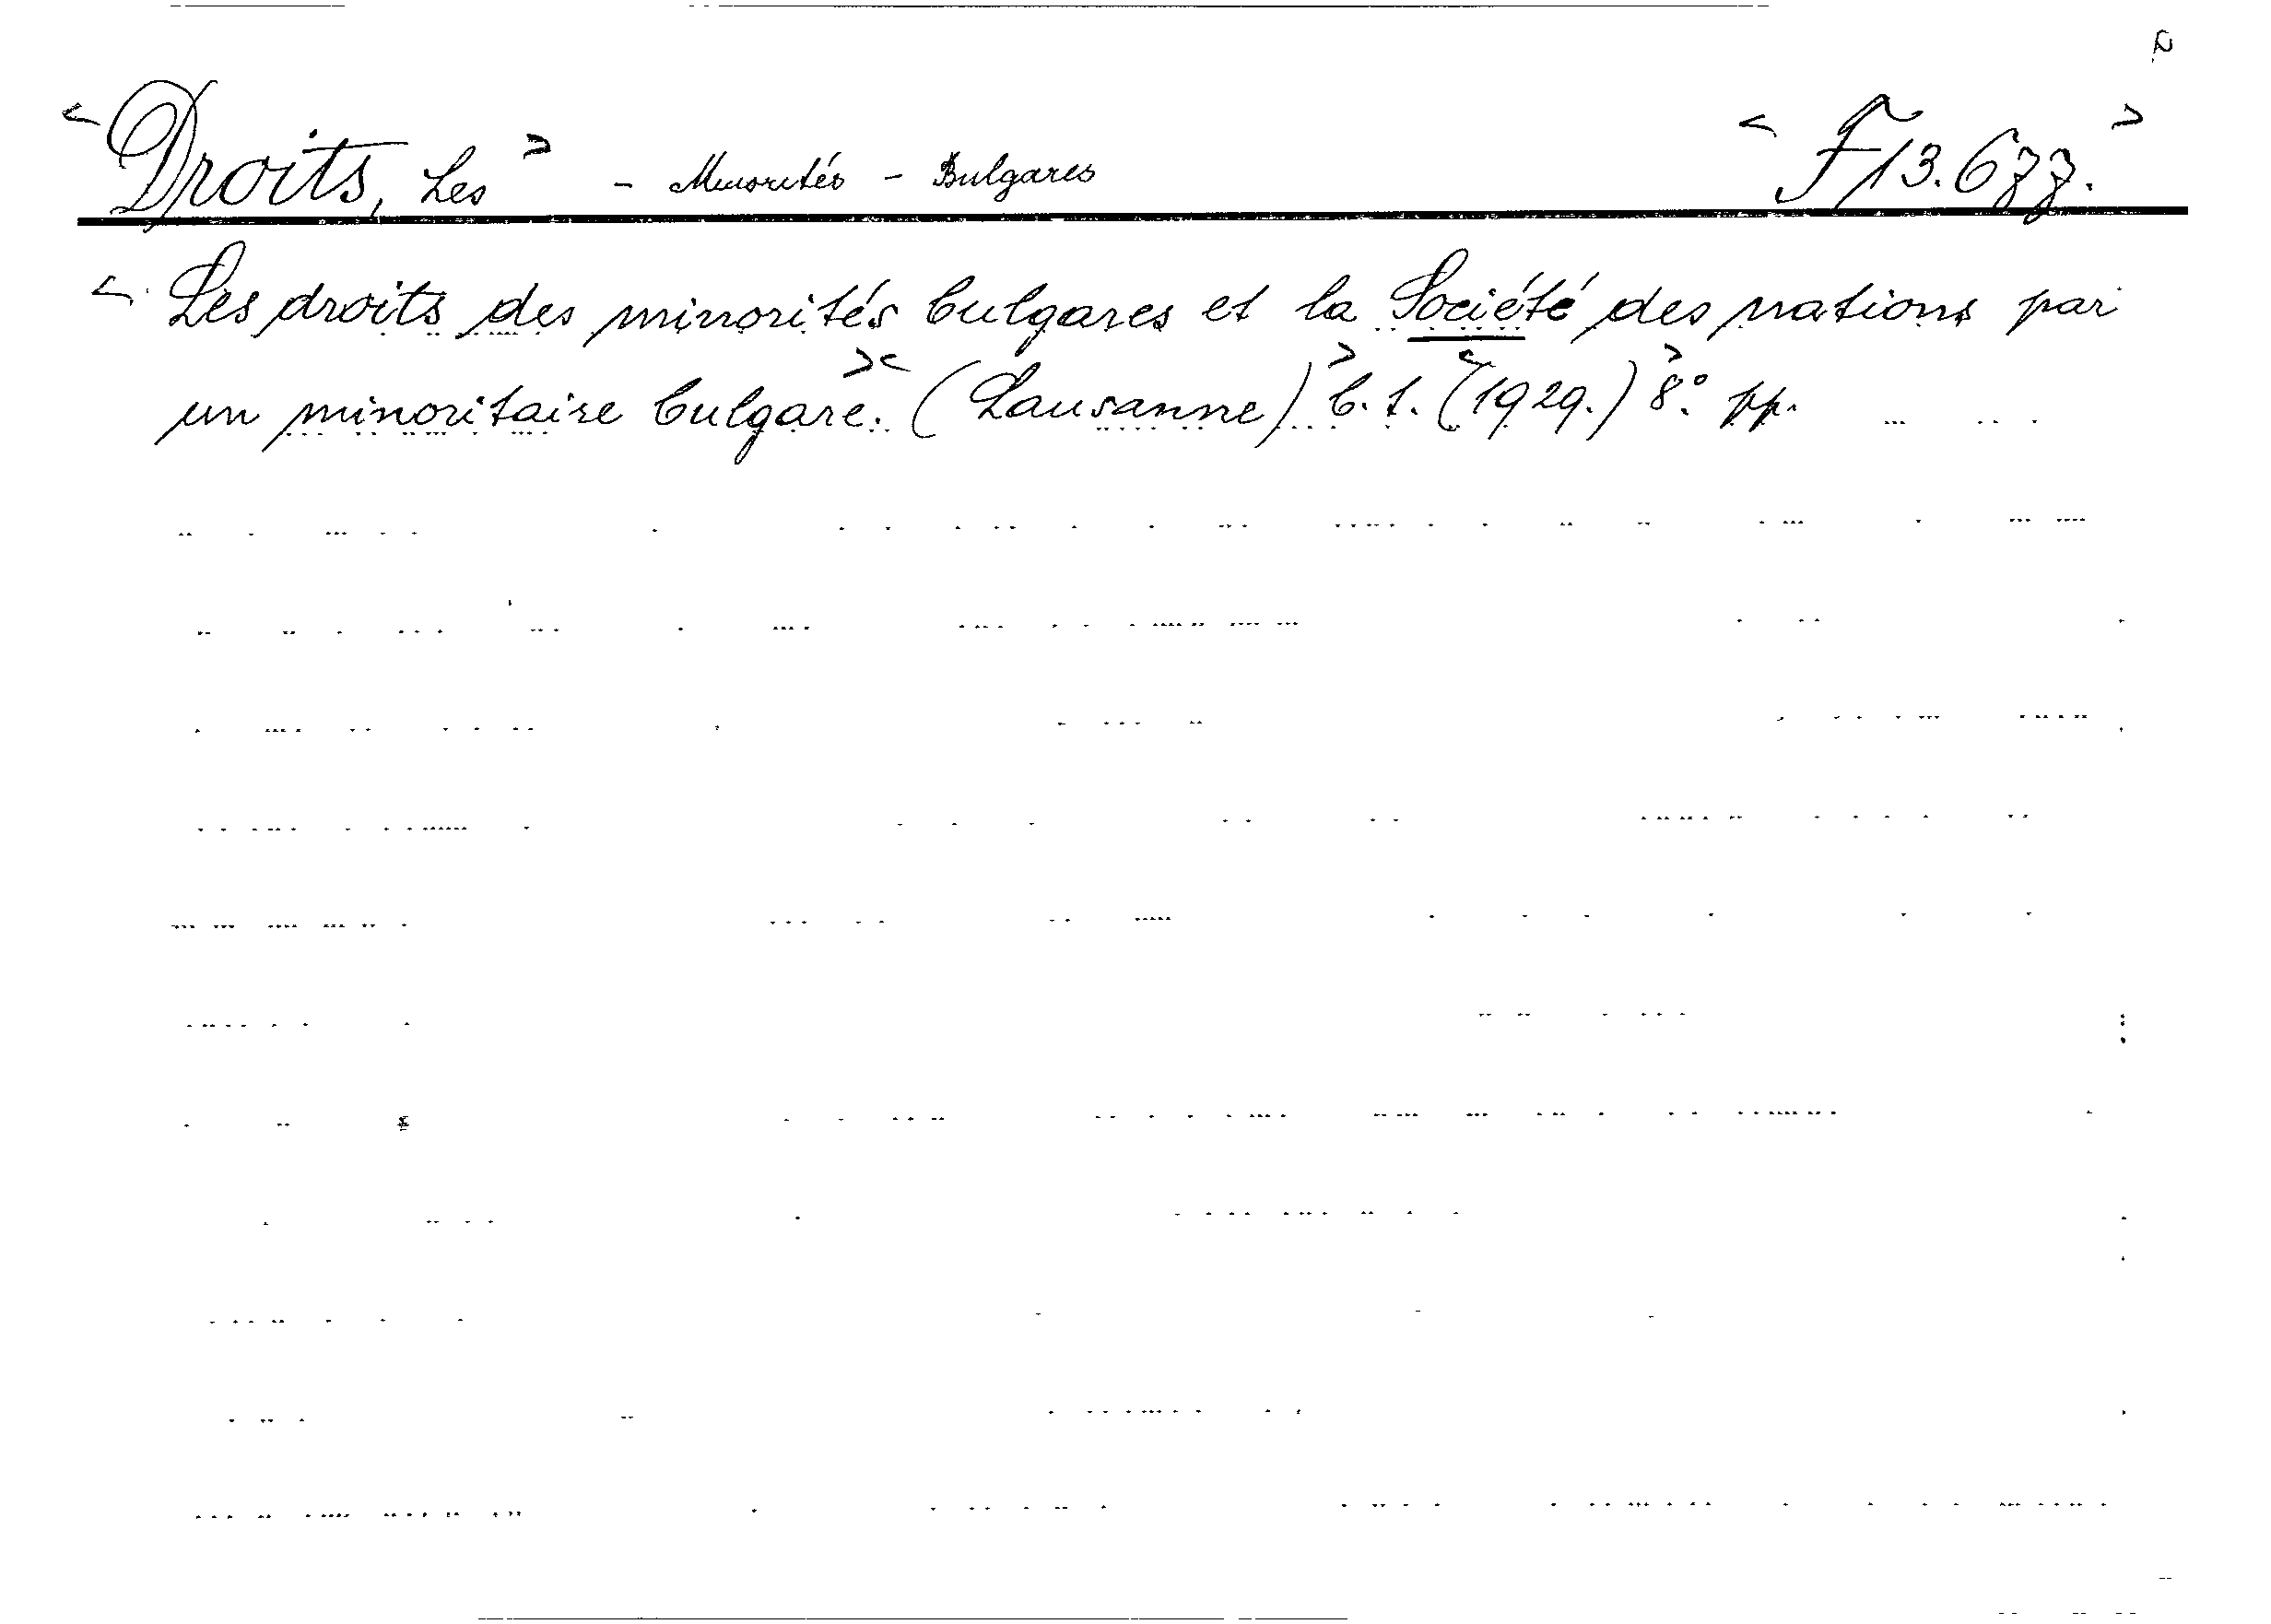 < Droits, Les > - Minorités - Bulgares < F 13.677. >
< Les droits des minorités bulgares et la Société des nations par
un minoritaire bulgare. >< (Lausanne) > b. t. < (1929.) > 8.° pp.